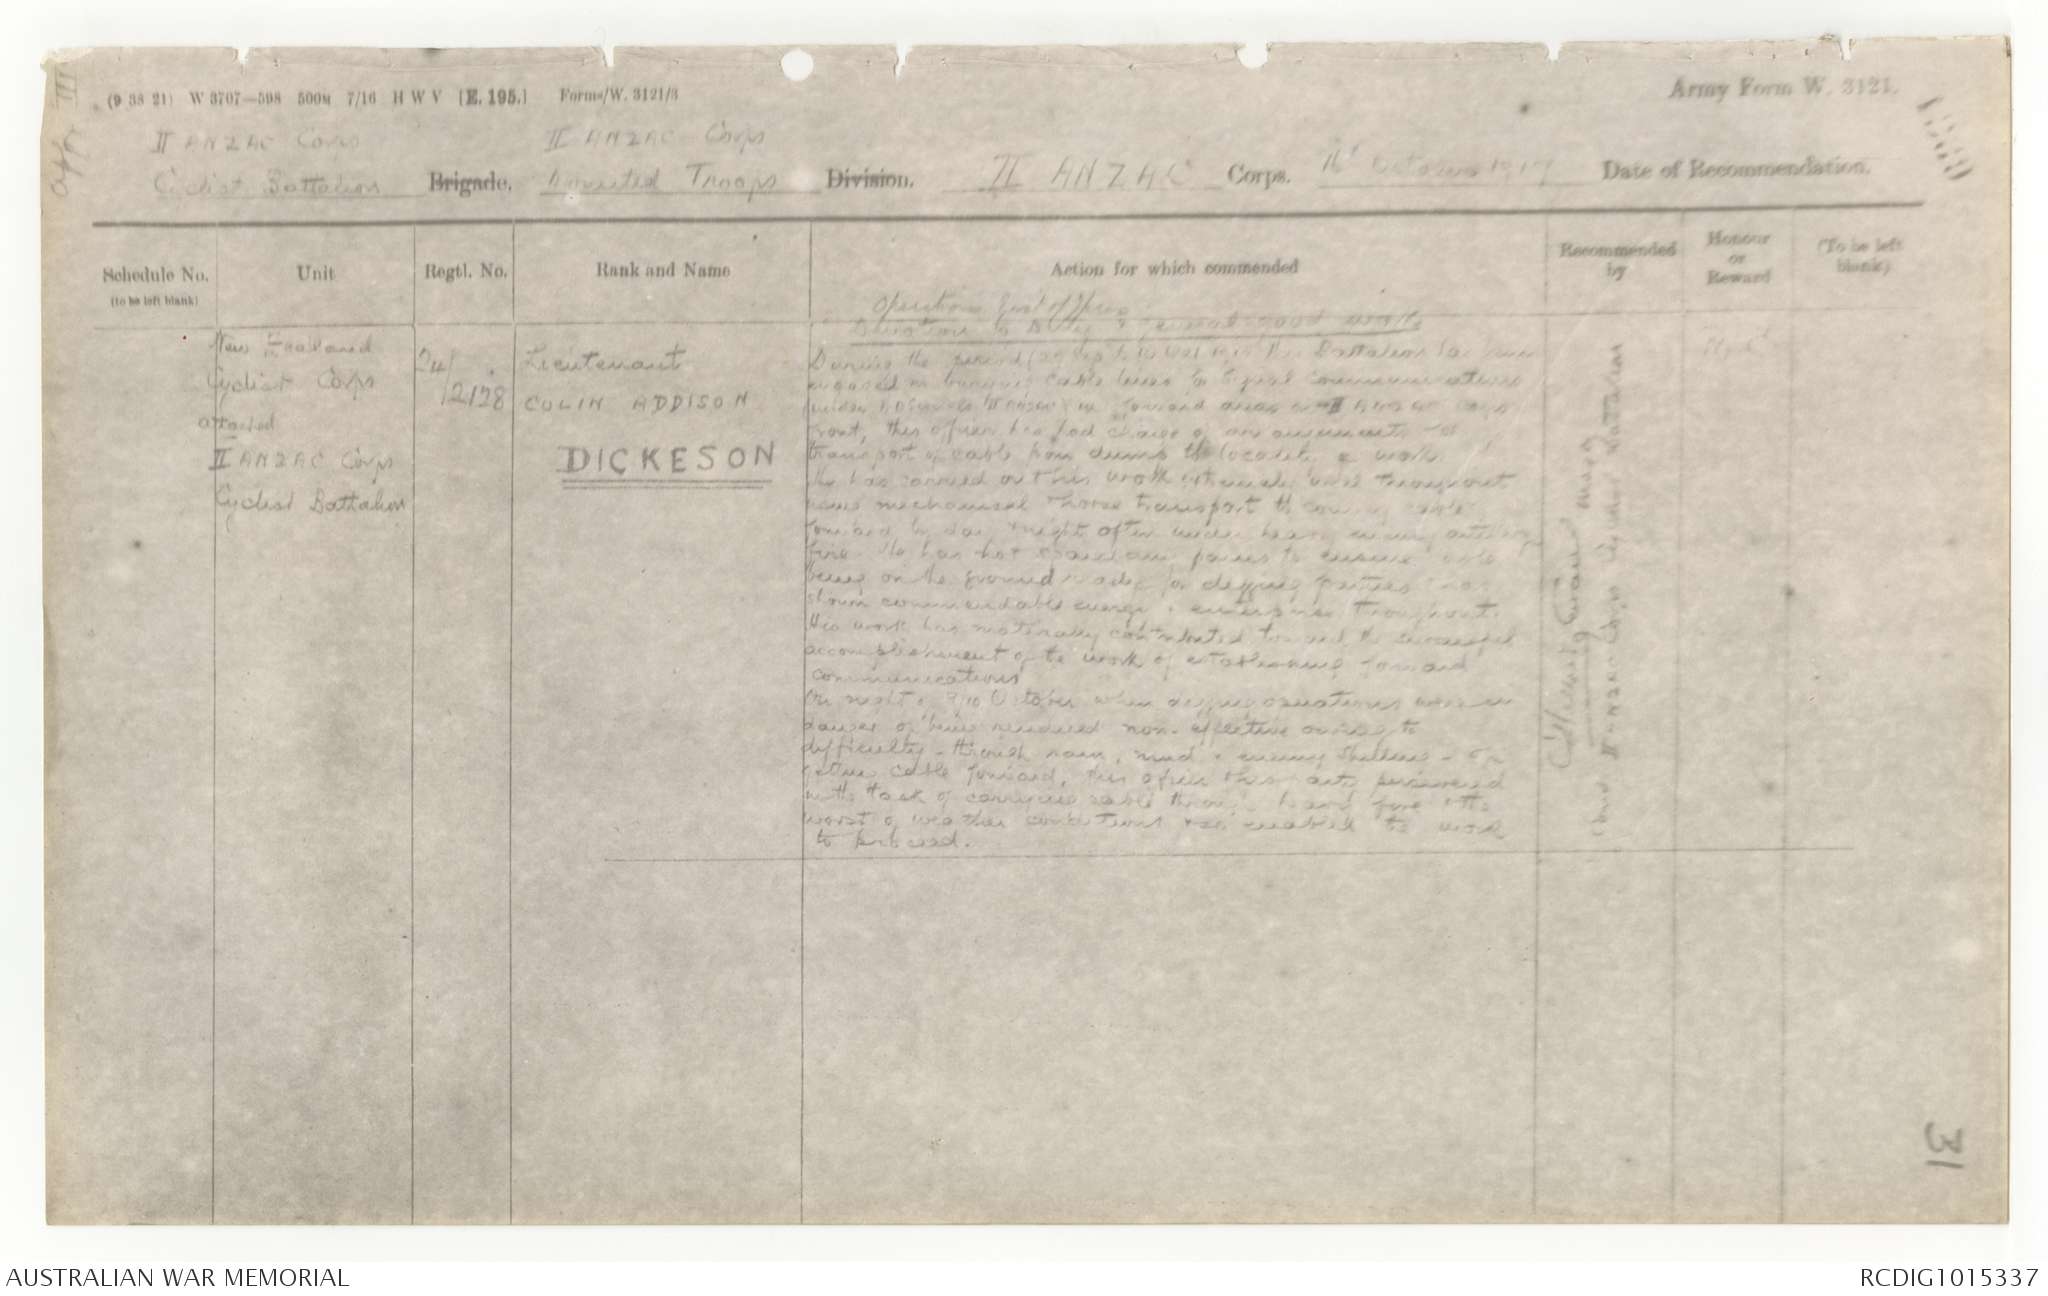 (9 38 21) W 3707—598 500M 7/16 H W V [E. 195.] Forms/W. 3121/3
Army Form W. 3121.
II ANZAC Corps
Cyclist Battalion Brigade.
II ANZAC Corps
Mounted Troops Division.
II ANZAC Corps.
October 1917 Date of Recommendation.
Schedule No.
(to be left blank)
Unit
Regtl. No.
Rank and Name
Action for which commended
Recommended
by
Honour
or
Reward
(To be left
blank)
New Zealand
Cyclist Corps
attached
II ANZAC Corps
Cyclist Battalion
24/
2128
Lieutenant
COLIN ADDISON
DICKESON
Operations East of Ypres
Devotion to Duty & general good work
During the period this Battalion has been
engaged in burying cable lines for signal communications
in forward areas II ANZAC Corps
front, this officer has had charge of arrangements for
transport of cable from dumps to locality of work
He has carried out his work extremely well throughout
using mechanical & horse transport to convey cable
forward by day & night often under heavy enemy artillery
fire. He has not spared any pains to ensure cable
being on the ground ready for digging parties & has
shown commendable energy & enterprise throughout.
His work has materially contributed toward the successful
accomplishment of the work of establishing forward
communications
On night of 9/10 October when digging operations were in
danger of being rendered non-effective owing to
difficulty - through rain, mud & enemy shelling - of
getting cable forward, this officer & his party persevered
with task of carrying cable through heavy fire & the
worst of weather conditions & so enabled the work
to proceed.
Major
Cmdg II ANZAC Corps Cyclist Battalion
31
AUSTRALIAN WAR MEMORIAL
RCDIG1015337